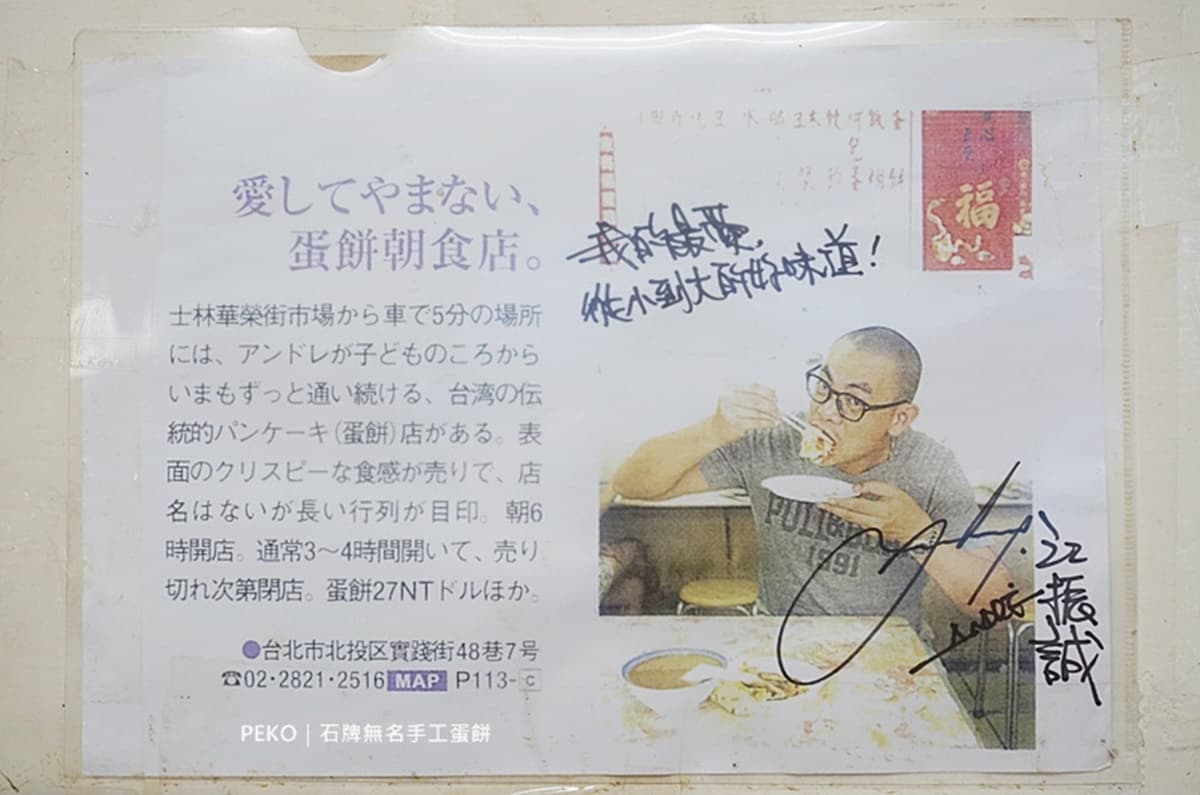 愛してやまない、
蛋餅朝食店。
士林華榮街市場から車で5分の場所
には、アンドレが子どものころから
いまもずっと通い続ける、台湾の伝
統的パンケーキ(蛋餅)店がある。表
面のクリスピーな食感が売りで、店
名はないが長い行列が目印。朝6
時開店。通常3〜4時間開いて、売り
切れ次第閉店。蛋餅27NTドルほか。
●台北市北投区實踐街48巷7号
☎02・2821・2516 MAP P113-C
福
我的最愛,
從小到大的好味道!
1991
振
誠
PEKO | 石牌無名手工蛋餅